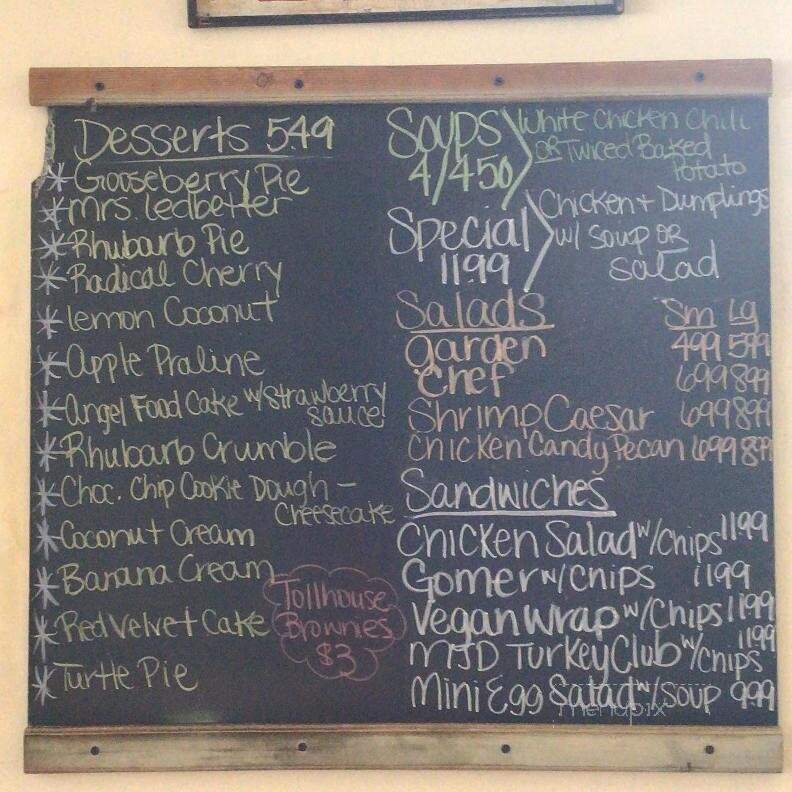 Desserts 549
* Gooseberry Pie
* Mrs. ledbetter
* Rhubarb Pie
* Radical Cherry
* lemon Coconut
* Apple Praline
* Angel Food Cake w/strawberry
sauce
* Rhubarb Crumble
* Choc. Chip Cookie Dough -
Cheesecake
* Coconut Cream
* Banana Cream
* Red Velvet Cake
* Turtle Pie
Tollhouse
Brownies
$3
Soups
4/450
White Chicken Chili
OR Twiced Baked
Potato
Special
1199
Chicken + Dumplings
w/ Soup OR
Salad
Salads Sm Lg
garden 499 599
Chef 699 899
Shrimp Caesar 699 899
Chicken Candy Pecan 699 899
Sandwiches
Chicken Salad w/Chips 1199
Gomer w/Chips 1199
Vegan Wrap w/Chips 1199
MJD Turkey Club w/Chips 1199
Mini Egg Salad w/Soup 999
menupix